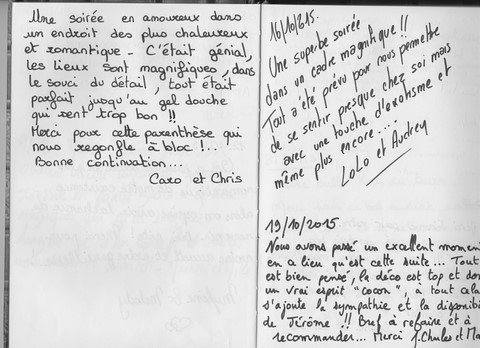 Une soirée en amoureux dans
un endroit des plus chaleureux
et romantique - C'était génial,
les lieux sont magnifiques, dans
le souci du détail, tout était
parfait jusqu'au gel douche
qui sent trop bon !!
Merci pour cette parenthèse qui
nous regonfle à bloc !..
Bonne continuation...
Caro et Chris
16/10/2015.
Une superbe soirée
dans un cadre magnifique !!
Tout a été prévu pour nous permettre
de se sentir presque chez soi mais
avec une touche d'exotisme et
même plus encore....
LoLo et Audrey
19/10/2015
Nous avons passé un excellent momen
en a lieu qu'est cette suite... Tout
est bien pensé, la déco est top et don
un vrai esprit "cocon", à tout cela
s'ajoute la sympathie et la disponibi
de Jérôme !! Bref à refaire et à
recommander... Merci J.Charles et Ma